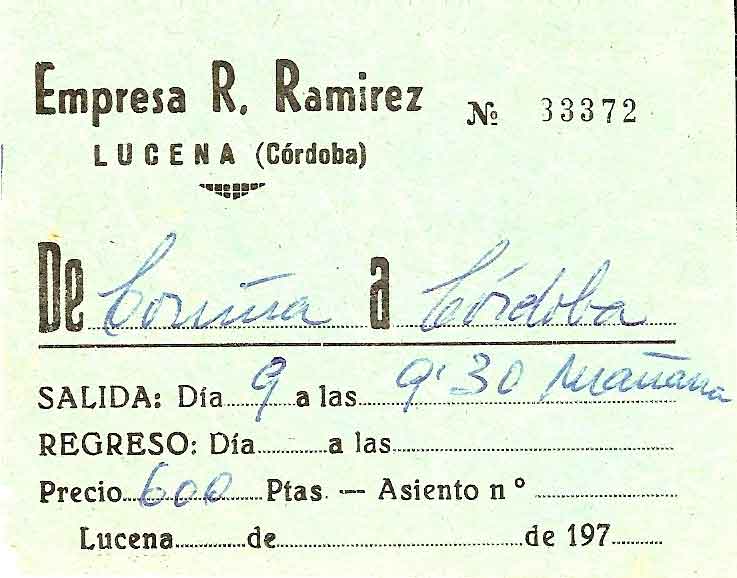 Empresa R. Ramirez Nº 33372
LUCENA (Córdoba)
De Coruña a Córdoba
SALIDA: Día 9 a las 9'30 Mañana
REGRESO: Día a las
Precio 600 Ptas. — Asiento n º
Lucena de de 197